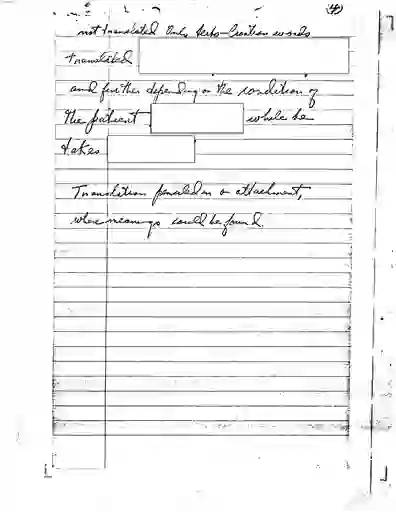 (4)
not translated Only Serbo-Croatian words
translated
and further depending on the condition of
the patient while he
takes
Translation penciled in on attachment,
where meanings could be found.